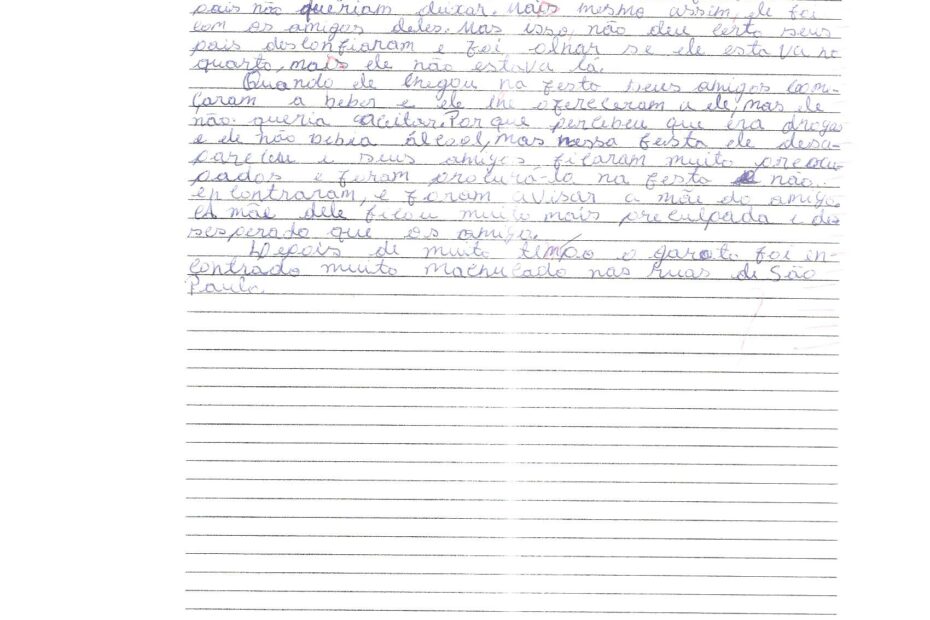 pais não queriam deixar. Mais mesmo assim, ele foi
com os amigos deles. Mas isso, não deu certo seus
pais desconfiaram e foi olhar se ele estava no
quarto, mais ele não estava lá.
Quando ele chegou na festa seus amigos com-
çaram a beber e ele lhe ofereceram a ele, mas ele
não queria aceitar. Por que percebeu que era drogas
e ele não bebia álcool, mas nessa festa ele desa-
pareceu e seus amigos ficaram muito preocu-
pados e foram procurá-lo na festa e não
encontraram, e foram avisar a mãe do amigo.
A mãe dele ficou muito mais preculpada e de-
sesperado que os amigo.
Depois de muito tempo o garoto foi in-
contrado muito machucado nas ruas de São
Paulo.